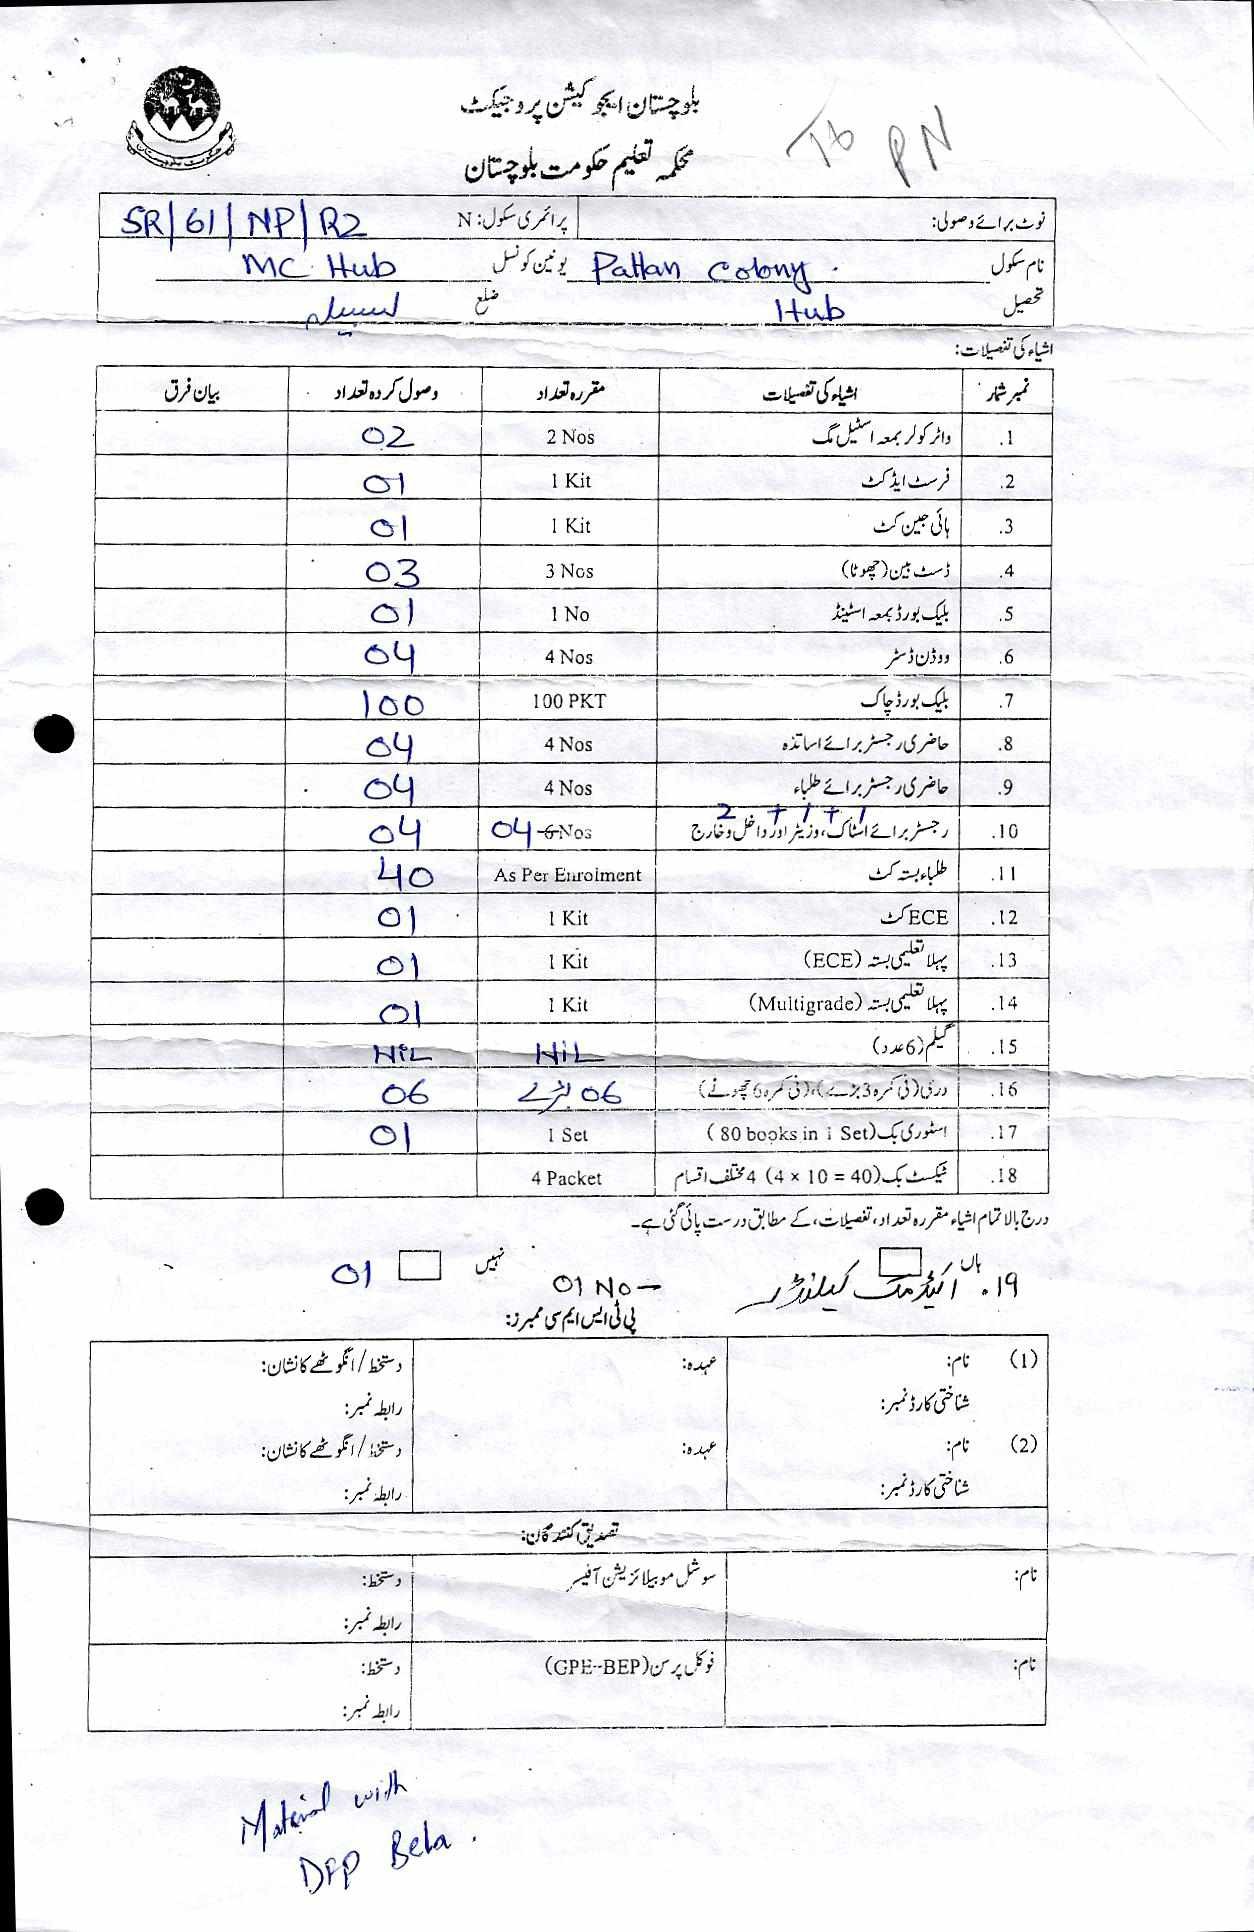 بلوچستان ایجوکیشن پروجیکٹ
محکمہ تعلیم حکومت بلوچستان
To PN
نوٹ برائے وصولی: پرائمری سکول: N SR/61/NP/R2
نام سکول Pattan Colony. یونین کونسل MC Hub
تحصیل Hub ضلع لسبیلہ
اشیاء کی تفصیلات:
نمبر شمار اشیاء کی تفصیلات مقررہ تعداد وصول کردہ تعداد بیان فرق
1. واٹر کولر بمعہ اسٹیل مگ 2 Nos 02
2. فرسٹ ایڈ کٹ 1 Kit 01
3. ہائی جین کٹ 1 Kit 01
4. ڈسٹ بین (چھوٹا) 3 Nos 03
5. بلیک بورڈ بمعہ اسٹینڈ 1 No 01
6. ووڈن ڈسٹر 4 Nos 04
7. بلیک بورڈ چاک 100 PKT 100
8. حاضری رجسٹر برائے اساتذہ 4 Nos 04
9. حاضری رجسٹر برائے طلباء 4 Nos 04
2 + 1 + 1
10. رجسٹر برائے اسٹاک، وزیٹر اور داخل و خارج 04 6 Nos 04
11. طلباء بستہ کٹ As Per Enrolment 40
12. ECE کٹ 1 Kit 01
13. پہلا تعلیمی بستہ (ECE) 1 Kit 01
14. پہلا تعلیمی بستہ (Multigrade) 1 Kit 01
15. گیلم (6 عدد) NIL NIL
16. دری (فی کمرہ 3 بڑے)، (فی کمرہ 6 چھوٹے) 06 بڑے 06
17. اسٹوری بک (80 books in 1 Set) 1 Set 01
18. ٹیکسٹ بک (4 × 10 = 40) 4 مختلف اقسام 4 Packet
درج بالا تمام اشیاء مقررہ تعداد، تفصیلات، کے مطابق درست پائی گئی ہے۔
ہاں نہیں
۱۹. اکیڈمک کیلنڈر 01 No 01
پی ٹی ایس ایم سی ممبرز:
(1) نام: عہدہ: دستخط/انگوٹھے کا نشان:
شناختی کارڈ نمبر: رابطہ نمبر:
(2) نام: عہدہ: دستخط/انگوٹھے کا نشان:
شناختی کارڈ نمبر: رابطہ نمبر:
تصدیق کنندگان:
نام: سوشل موبیلائزیشن آفیسر دستخط:
رابطہ نمبر:
نام: فوکل پرسن (GPE-BEP) دستخط:
رابطہ نمبر:
Material with
DFP Bela.